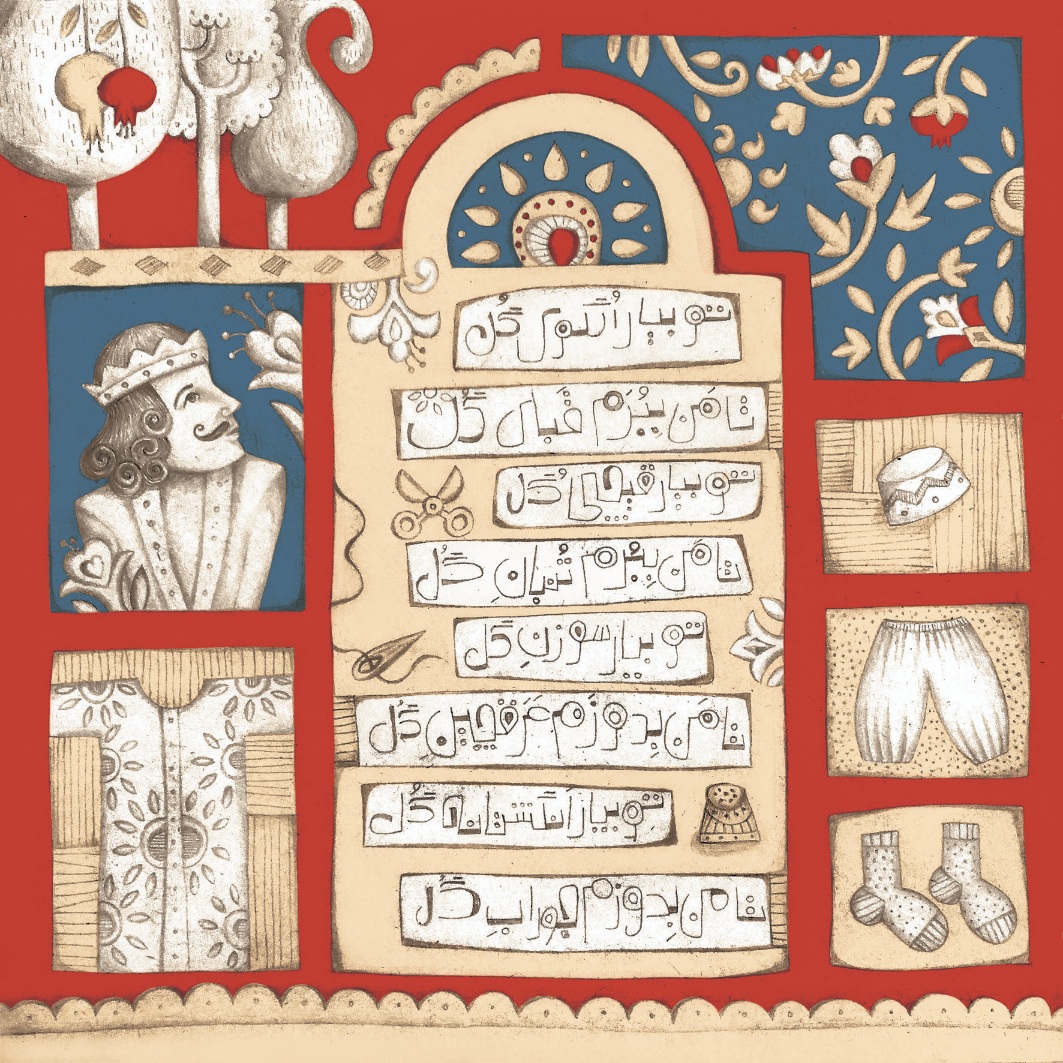 تو بیار اُلگوی گُل
تا مَن بِبُرَم قَبای گُل
تو بیار قِیچی گُل
تا مَن بِبُرَم تُمبانِ گُل
تو بیار سوزنِ گُل
تا مَن بِدوزَم عَرَقچینِ گُل
تو بیار اَنگشتانه گُل
تا من بِدوزَم جورابِ گُل